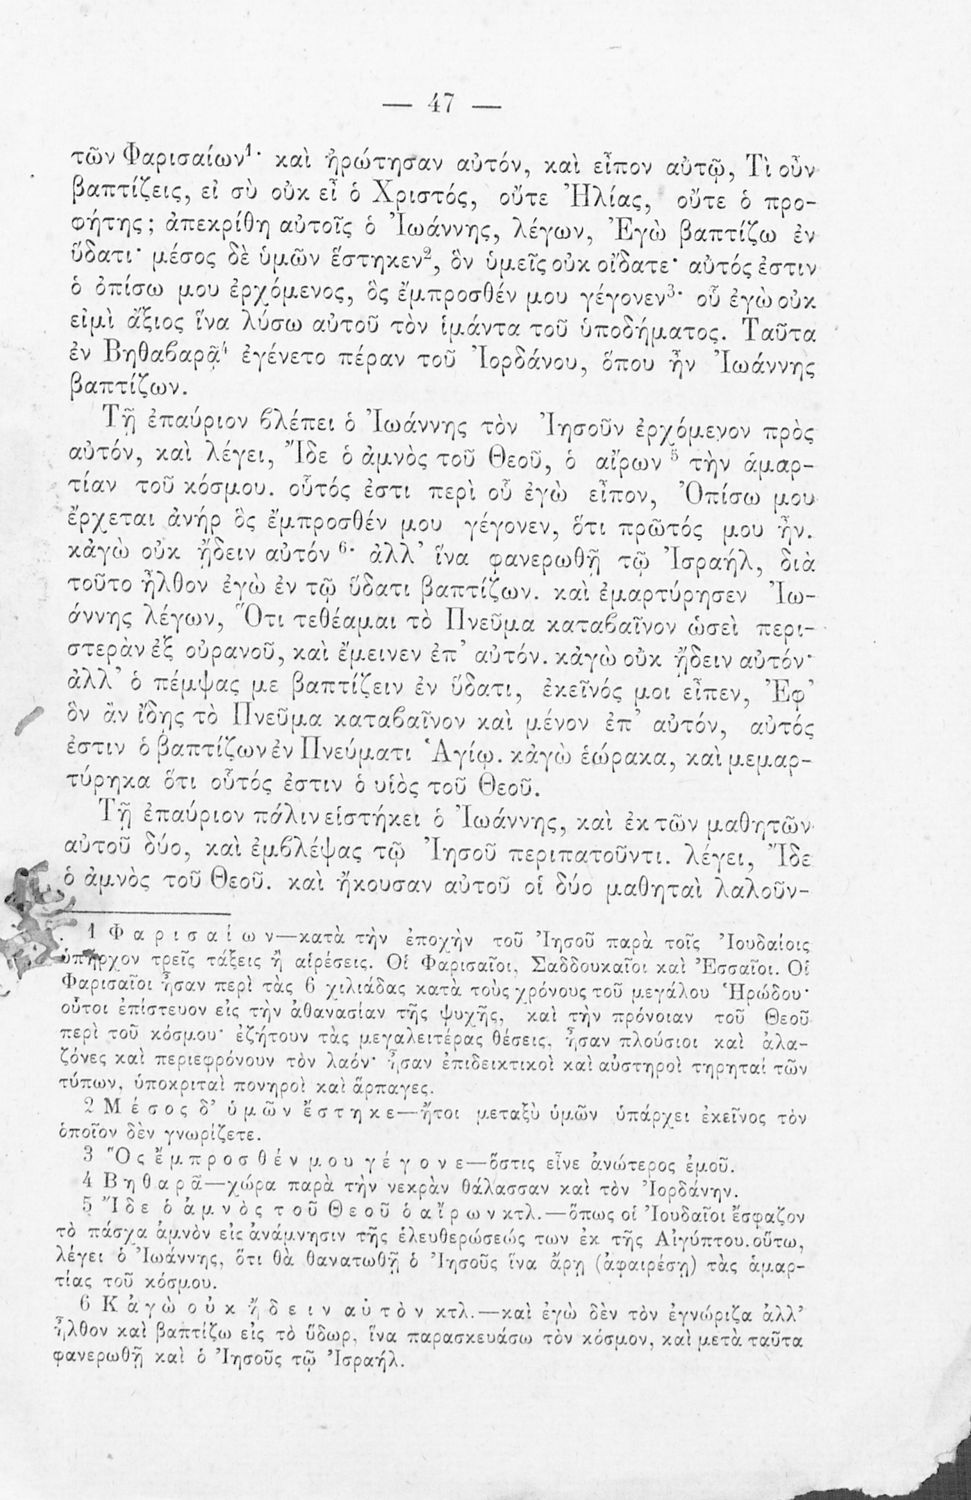 — 47 —
τῶν Φαρισαίων¹· καὶ ἠρώτησαν αὐτόν, καὶ εἶπον αὐτῷ, Τὶ οὖν
βαπτίζεις, εἰ σὺ οὐκ εἶ ὁ Χριστός, οὔτε Ἠλίας, οὔτε ὁ προ-
φήτης; ἀπεκρίθη αὐτοῖς ὁ Ἰωάννης, λέγων, Ἐγὼ βαπτίζω ἐν
ὕδατι· μέσος δὲ ὑμῶν ἕστηκεν², ὃν ὑμεῖς οὐκ οἴδατε· αὐτός ἐστιν
ὁ ὀπίσω μου ἐρχόμενος, ὃς ἔμπροσθέν μου γέγονεν³· οὗ ἐγὼ οὐκ
εἰμὶ ἄξιος ἵνα λύσω αὐτοῦ τὸν ἱμάντα τοῦ ὑποδήματος. Ταῦτα
ἐν Βηθαβαρᾷ⁴ ἐγένετο πέραν τοῦ Ἰορδάνου, ὅπου ἦν Ἰωάννης
βαπτίζων.
Τῇ ἐπαύριον βλέπει ὁ Ἰωάννης τὸν Ἰησοῦν ἐρχόμενον πρὸς
αὐτόν, καὶ λέγει, Ἴδε ὁ ἀμνὸς τοῦ Θεοῦ, ὁ αἴρων⁵ τὴν ἁμαρ-
τίαν τοῦ κόσμου. οὗτός ἐστι περὶ οὗ ἐγὼ εἶπον, Ὀπίσω μου
ἔρχεται ἀνήρ ὃς ἔμπροσθέν μου γέγονεν, ὅτι πρῶτός μου ἦν.
κἀγὼ οὐκ ᾔδειν αὐτόν⁶· ἀλλ' ἵνα φανερωθῇ τῷ Ἰσραήλ, διὰ
τοῦτο ἦλθον ἐγὼ ἐν τῷ ὕδατι βαπτίζων. καὶ ἐμαρτύρησεν Ἰω-
άννης λέγων, Ὅτι τεθέαμαι τὸ Πνεῦμα καταβαῖνον ὡσεὶ περι-
στερὰν ἐξ οὐρανοῦ, καὶ ἔμεινεν ἐπ' αὐτόν. κἀγὼ οὐκ ᾔδειν αὐτόν·
ἀλλ' ὁ πέμψας με βαπτίζειν ἐν ὕδατι, ἐκεῖνός μοι εἶπεν, Ἐφ'
ὃν ἂν ἴδῃς τὸ Πνεῦμα καταβαῖνον καὶ μένον ἐπ' αὐτόν, αὐτός
ἐστιν ὁ βαπτίζων ἐν Πνεύματι Ἁγίῳ. κἀγὼ ἑώρακα, καὶ μεμαρ-
τύρηκα ὅτι οὗτός ἐστιν ὁ υἱὸς τοῦ Θεοῦ.
Τῇ ἐπαύριον πάλιν εἱστήκει ὁ Ἰωάννης, καὶ ἐκ τῶν μαθητῶν
αὐτοῦ δύο, καὶ ἐμβλέψας τῷ Ἰησοῦ περιπατοῦντι. λέγει, Ἴδε
ὁ ἀμνὸς τοῦ Θεοῦ. καὶ ἤκουσαν αὐτοῦ οἱ δύο μαθηταὶ λαλοῦν-
1 Φαρισαίων—κατὰ τὴν ἐποχὴν τοῦ Ἰησοῦ παρὰ τοῖς Ἰουδαίοις
ὑπῆρχον τρεῖς τάξεις ἢ αἱρέσεις. Οἱ Φαρισαῖοι, Σαδδουκαῖοι καὶ Ἐσσαῖοι. Οἱ
Φαρισαῖοι ἦσαν περὶ τὰς 6 χιλιάδας κατὰ τοὺς χρόνους τοῦ μεγάλου Ἡρώδου·
οὗτοι ἐπίστευον εἰς τὴν ἀθανασίαν τῆς ψυχῆς, καὶ τὴν πρόνοιαν τοῦ Θεοῦ
περὶ τοῦ κόσμου· ἐζήτουν τὰς μεγαλειτέρας θέσεις, ἦσαν πλούσιοι καὶ ἀλα-
ζόνες καὶ περιεφρόνουν τὸν λαόν· ἦσαν ἐπιδεικτικοὶ καὶ αὐστηροὶ τηρηταί τῶν
τύπων, ὑποκριταὶ πονηροὶ καὶ ἅρπαγες.
2 Μέσος δ' ὑμῶν ἕστηκε—ἤτοι μεταξὺ ὑμῶν ὑπάρχει ἐκεῖνος τὸν
ὁποῖον δὲν γνωρίζετε.
3 Ὃς ἔμπροσθέν μου γέγονε—ὅστις εἶνε ἀνώτερος ἐμοῦ.
4 Βηθαρᾶ—χώρα παρὰ τὴν νεκρὰν θάλασσαν καὶ τὸν Ἰορδάνην.
5 Ἴδε ὁ ἀμνὸς τοῦ Θεοῦ ὁ αἴρων κτλ.—ὅπως οἱ Ἰουδαῖοι ἔσφαζον
τὸ πάσχα ἀμνὸν εἰς ἀνάμνησιν τῆς ἐλευθερώσεώς των ἐκ τῆς Αἰγύπτου. οὕτω,
λέγει ὁ Ἰωάννης, ὅτι θὰ θανατωθῇ ὁ Ἰησοῦς ἵνα ἄρῃ (ἀφαιρέσῃ) τὰς ἁμαρ-
τίας τοῦ κόσμου.
6 Κἀγὼ οὐκ ᾔδειν αὐτὸν κτλ.—καὶ ἐγὼ δὲν τὸν ἐγνώριζα ἀλλ'
ἦλθον καὶ βαπτίζω εἰς τὸ ὕδωρ, ἵνα παρασκευάσω τὸν κόσμον, καὶ μετὰ ταῦτα
φανερωθῇ καὶ ὁ Ἰησοῦς τῷ Ἰσραήλ.